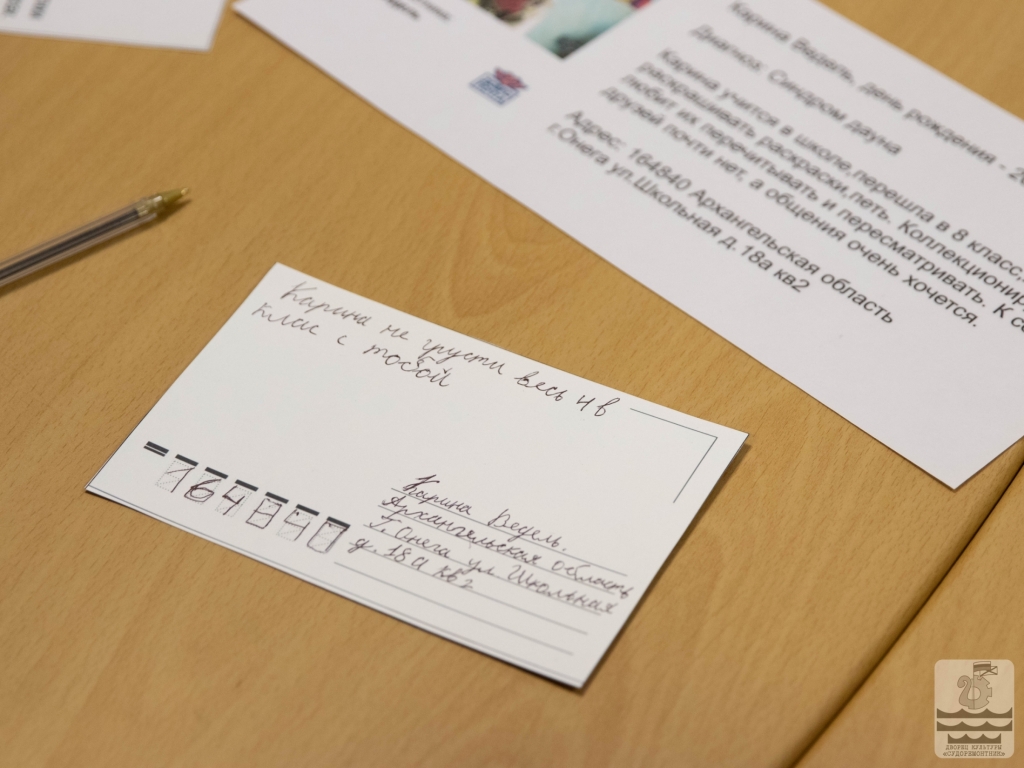 Карина Ведель, день рождения - 20
Диагноз: Синдром дауна
Карина учится в школе, перешла в 8 класс.
раскрашивать раскраски, петь. Коллекционир
любит их перечитывать и пересматривать. К со
друзей почти нет, а общения очень хочется.
Адрес: 164840 Архангельская область
г.Онега ул.Школьная д. 18а кв2
Карина не грусти весь 4 в
клас с тобой
164840
Карина Ведель.
Архангельская область
Г Онега ул. Школьная
д. 18а кв2
25
ДВОРЕЦ КУЛЬТУРЫ
«СУДОРЕМОНТНИК»